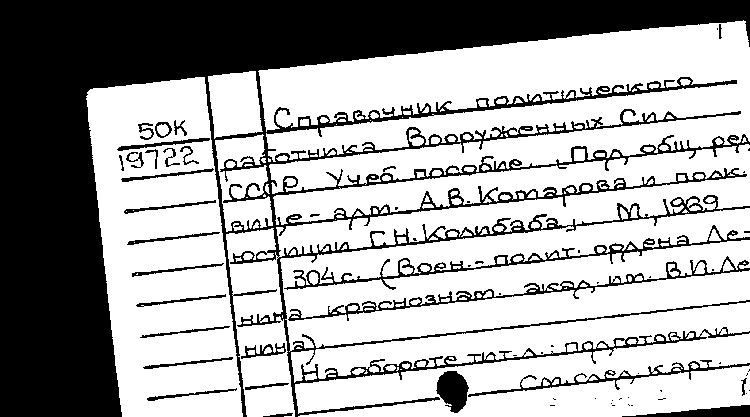 50К
19722
Справочник политического
работника Вооруженных Сил
СССР. Учеб. пособие. [Под общ. ред.
вице-адм. А.В. Комарова и полк.
юстиции Г.Н. Колибаба]. М., 1989
304 с. (Воен.-полит. ордена Ле-
нина краснознам. акад. им. В.И. Ле
нина).
На обороте тит. л.: подготовили
См. след. карт.